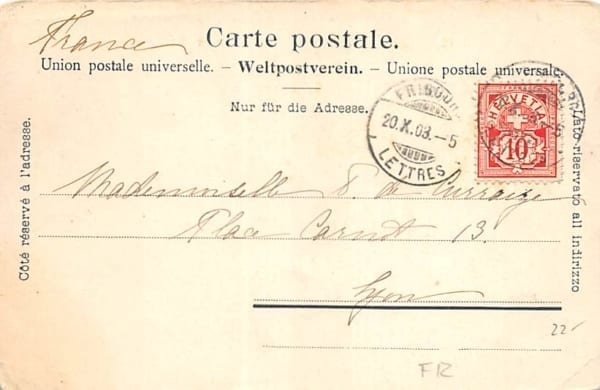 France
Carte postale.
Union postale universelle. – Weltpostverein. – Unione postale universale
Nur für die Adresse.
Côté réservé à l'adresse.
Lato riservato all indirizzo
FRIBOURG
20.X.03.–5
LETTRES
HELVETIA
10
Mademoiselle
Place Carnot 13.
Lyon
22
FR